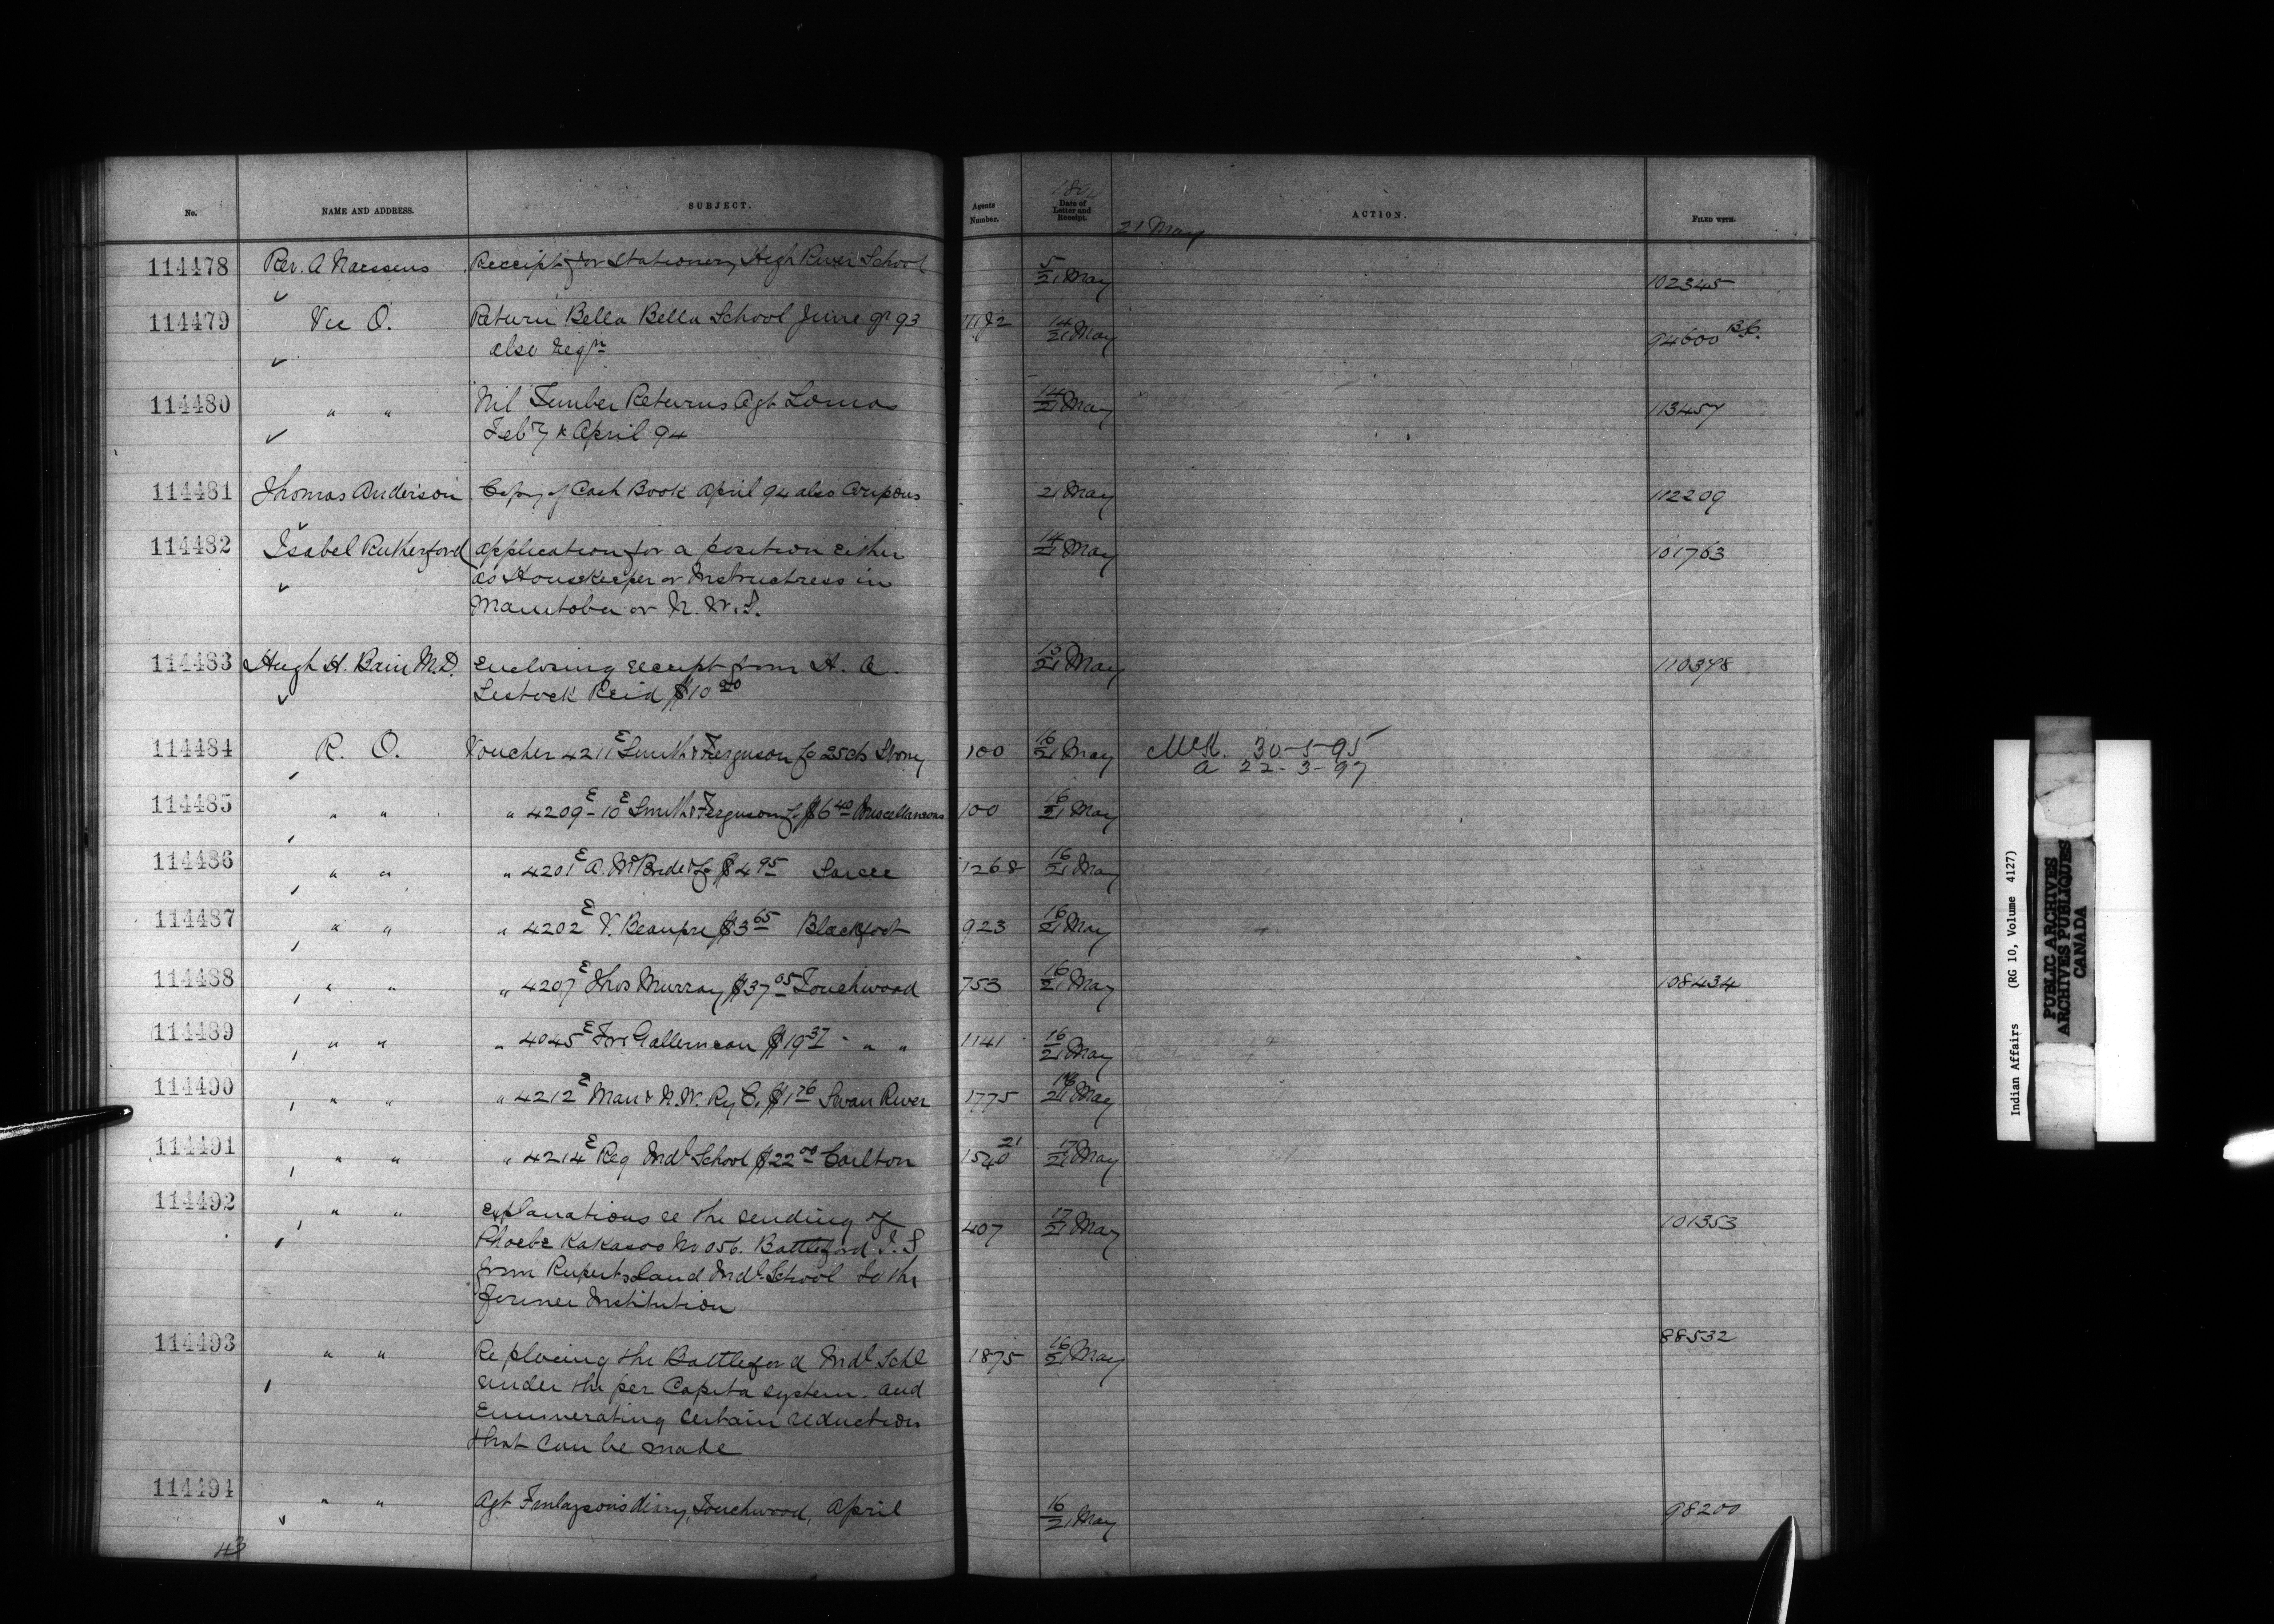 No. NAME AND ADDRESS. SUBJECT. Agents Number. Date of Letter and Receipt. ACTION. FILED WITH.
21 May
114478 Rev. A Naessens Receipt for Stationery High River School 5/21 May 102345
114479 Vic O. Return Bella Bella School June qr 93 14/21 May 94600 B.C.
also reqn
114480 " " Nil Timber Returns Agt Lomas 14/21 May 113457
Feby & April 94
114481 Thomas Anderson Copy of Cash Book April 94 also Coupons 21 May 112209
114482 Isabel Rutherford application for a position either 14/21 May 101763
as Housekeeper or Instructress in
Manitoba or N. W. T.
114483 Hugh H. Bain M.D. Enclosing receipt from H. A. 15/21 May 110378
Lestock Reid $10 20
114484 R. O. Voucher 4211 E Smith & Ferguson fo 25cts Stony 100 16/21 May McK. 30-5-95
a 22-3-97
114485 " " " 4209 E - 10 E Smith & Ferguson fo $6 40 Miscellaneous 100 16/21 May
114486 " " " 4201 E A. McBride & Co $4 95 Sarcee 1268 16/21 May
114487 " " " 4202 E V. Beaupre $3 65 Blackfoot 923 16/21 May
114488 " " " 4207 E Thos Murray $37 05 Touchwood 753 16/21 May 108434
114489 " " " 4045 E Gallerneau $19 37 " " 1141 16/21 May
114490 " " " 4212 E Man & N.W. Ry C. $1 76 Swan River 1775 16/21 May
114491 " " " 4214 E Reg Indl School $22 00 Carlton 1540 21 17/21 May
114492 " " explanations re the sending of 407 17/21 May 101353
Phoebe Kakasoo No 056. Battleford I. S.
from Rupertsland Indl. School to the
former Institution
114493 " " Re placing the Battleford Indl Schl 1875 16/21 May 88532
under the per Capita system and
Enumerating certain reduction
that can be made
114494 " " Agt Finlayson's diary, Touchwood, April 16/21 May 98200
43
Indian Affairs (RG 10, Volume 4127)
PUBLIC ARCHIVES
ARCHIVES PUBLIQUES
CANADA